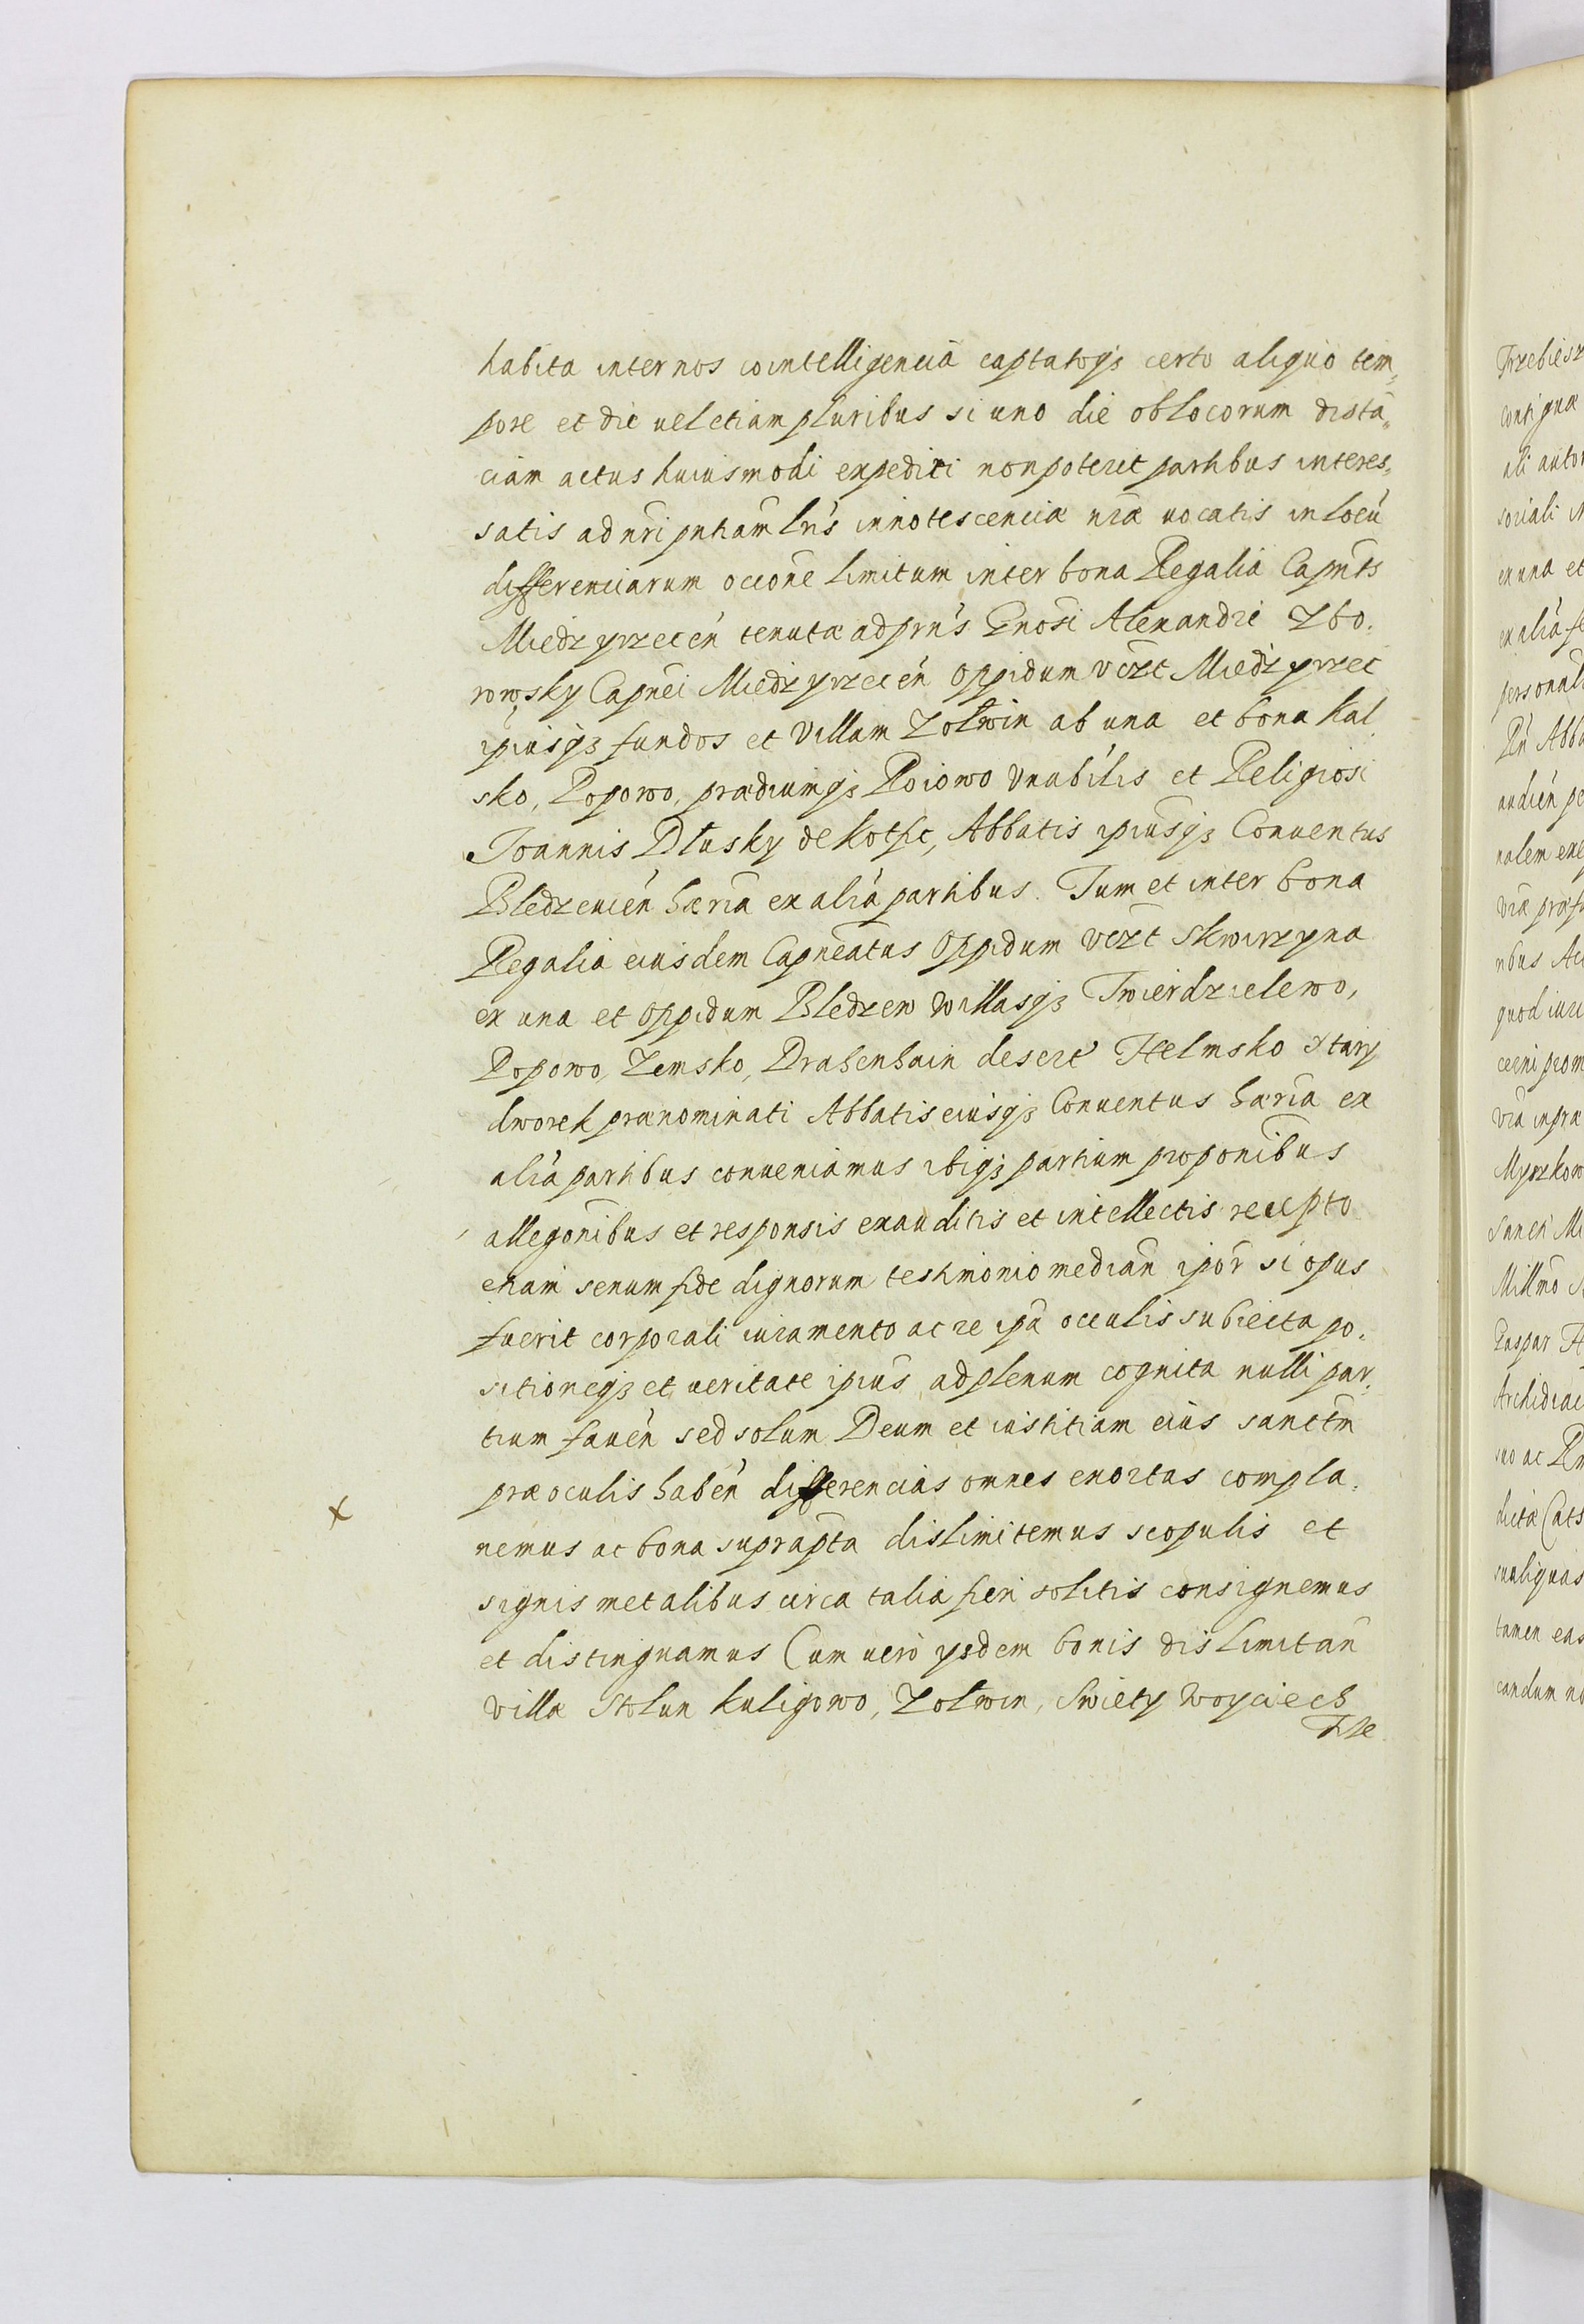 habita inter nos cointelligencia captatoq3 certo aliquo tem„
pore et die uel etiam pluribus si uno die ob locorum distā„
ciam actus huiusmodi expediri non poterit partibus interes„
satis ad nrī pntiam lrīs innotescenciæ nrāe uocatis in locū
differenciarum occōne limitum inter bona Regalia Capnts̄
Miedzyrzecen̄ tenutæ ad prn̄s Gnosī Alexandri Zbo.
rowsky Capneī Miedzyrzecen̄ oppidum vczt Miedzyrzec
ipiusq3 fundos et Villam Zołwin ab una et bona kal
sko, Popowo, prædiumq3 Roiowo Vnabīlis et Religiosi
Joannis Dłusky de kotſic, Abbatis ipiusq3 Conuentus
Bledzeuien̄ hæria ex aliá partibus. Tum et inter bona
Regalia eiusdem Capneātus Oppidum vczt Skwirzyna
ex una et oppidum Bledzew Willasq3 Twierdzielewo,
Popowo, Zemsko, Drahenhain desert Helmsko Stary
dworek prænominati Abbatis eiusq3 Conuentus hæria ex
aliá partibus conueniamus ibiq3 partium proponib̄us
allegonib̄us et responsis exauditis et intellectis recepto
etiam senum fide dignorum testimonio median̄ ipor̄ si opus
fuerit corporali iuramento ac re ipā occulis subiecta po.
sitioneq3 et ueritate ipius ad plenum cognita nulli par.
tium fauen̄ sed solum Deum et iustitiam eius sanctm̄
præ oculis haben̄ differencias omnes exortas compla.
nemus ac bona suprapta dislimitemus scopulis et
signis metalibus circa talia fieri solitis consignemus
et distinguamus Cum uero ysdem bonis dislimitan̄
villæ Stolun kuligowo, Zołwin, Swiety Woyciech
Trze
x
Trzebiesz
contiguæ
ali autor
soriali
ex una et
ex aliá
personal
Rn̄ Abb
audien̄ pe
nalem exe
nibus Ac
quod iure
cerni prom
Myszkow
Gaspar H
Archidiac
suo ac Rn̄
dictæ Cats
tamen eas
candum no